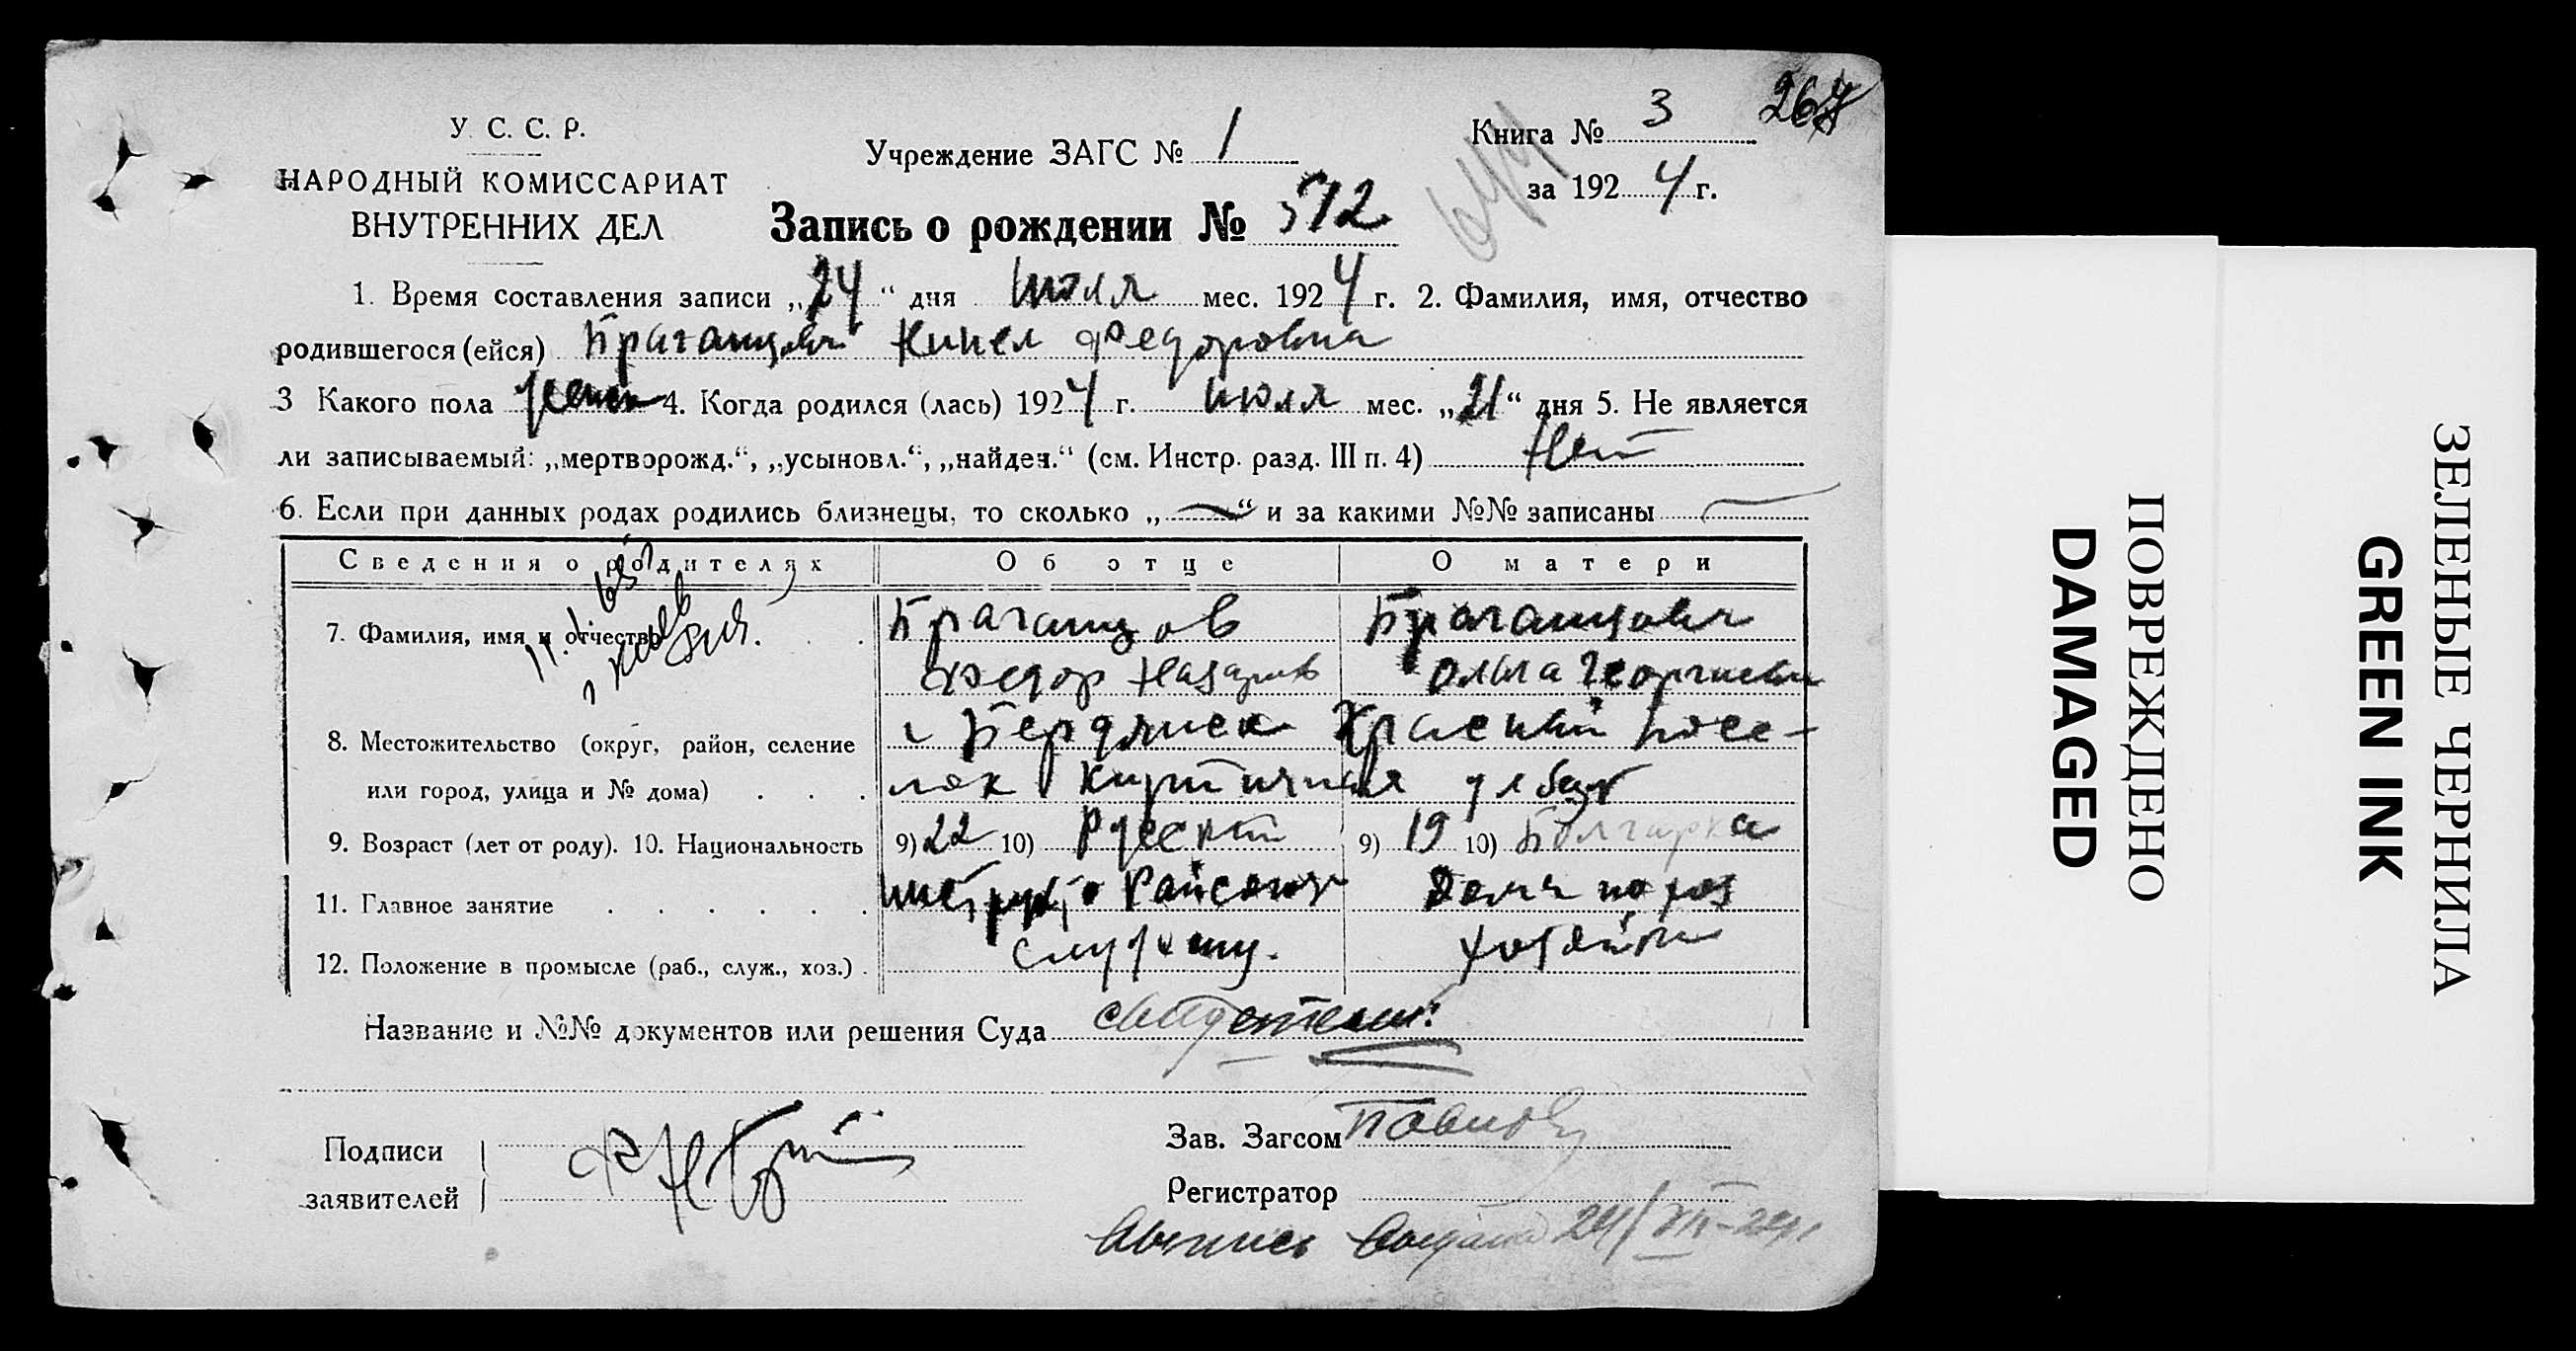 У. С. С. Р.
НАРОДНЫЙ КОМИССАРИАТ
ВНУТРЕННИХ ДЕЛ
Учреждение ЗАГС № 1
Книга № 3
267
за 1924 г.
Запись о рождении № 572
1. Время составления записи „24“ дня июля мес. 1924 г. 2. Фамилия, имя, отчество
родившегося (ейся) Нинел Федоровна
3 Какого пола женск 4. Когда родился (лась) 1924 г. июля мес. „21“ дня 5. Не является
ли записываемый: „мертворожд.“, „усыновл.“, „найден.“ (см. Инстр. разд. III п. 4) Нет
6. Если при данных родах родились близнецы, то сколько „—“ и за какими №№ записаны —
Сведения о родителях Об отце О матери
7. Фамилия, имя и отчество
Федор Назаров Ольга Георгиевн
8. Местожительство (округ, район, селение г Бердянск Красный посе-
или город, улица и № дома) лок Кирпичная
9. Возраст (лет от роду). 10. Национальность 9) 22 10) Русский 9) 19 10) Болгарка
11. Главное занятие Райсоюз Домн по хоз
12. Положение в промысле (раб., служ., хоз.) служащ. хозяйки
Название и №№ документов или решения Суда свидетели:
Подписи
заявителей
Зав. Загсом Павлов
Регистратор
Выпись выдана 24/VII-24г
ПОВРЕЖДЕНО
DAMAGED
ЗЕЛЕНЫЕ ЧЕРНИЛА
GREEN INK